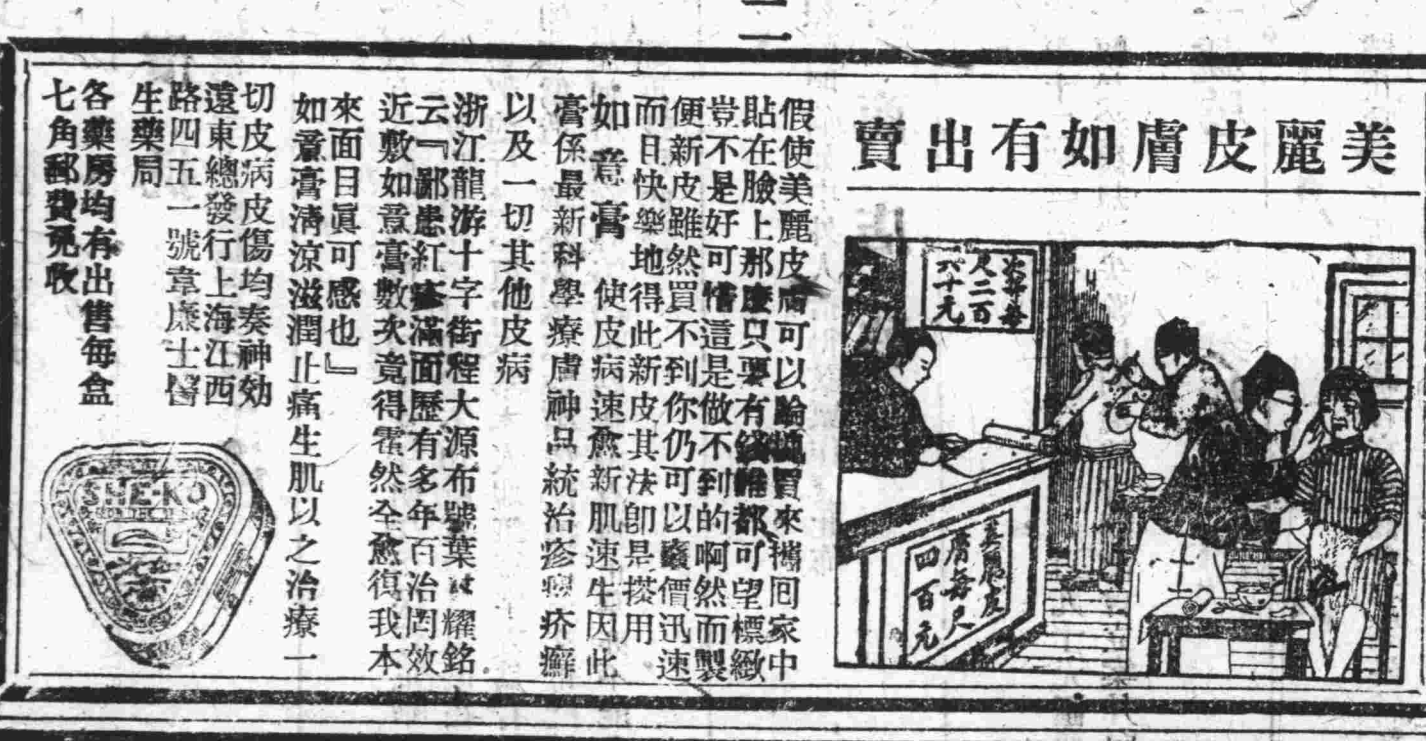 二
美麗皮膚如有出賣
尺二百
六十元
美麗皮
膚每尺
四百元
假使美麗皮膚可以論尺買來攜回家中
貼在臉上那麼只要有錢誰都可望標緻
豈不是好可惜這是做不到的啊然而製
便新皮雖然買不到你仍可以廉價迅速
而且快樂地得此新皮其法卽是搽用
如意膏 使皮病速愈新肌速生因此
膏係最新科學療膚神品統治疹癬疥癩
以及一切其他皮病
浙江龍游十字街程大源布號葉耀銘
云『鄙患紅疹滿面歷有多年百治罔效
近敷如意膏數次竟得霍然全愈復我本
來面目眞可感也』
如意膏清涼滋潤止痛生肌以之治療一
切皮病皮傷均奏神効
遠東總發行上海江西
路四五一號韋廉士醫
生藥局
各藥房均有出售每盒
七角郵費免收
SHE-KO